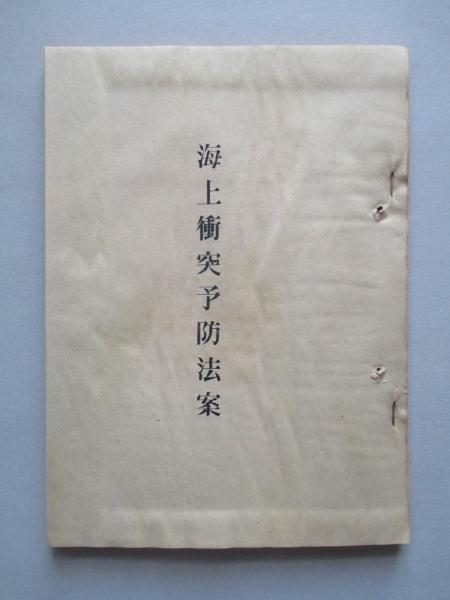 海上衝突予防法案